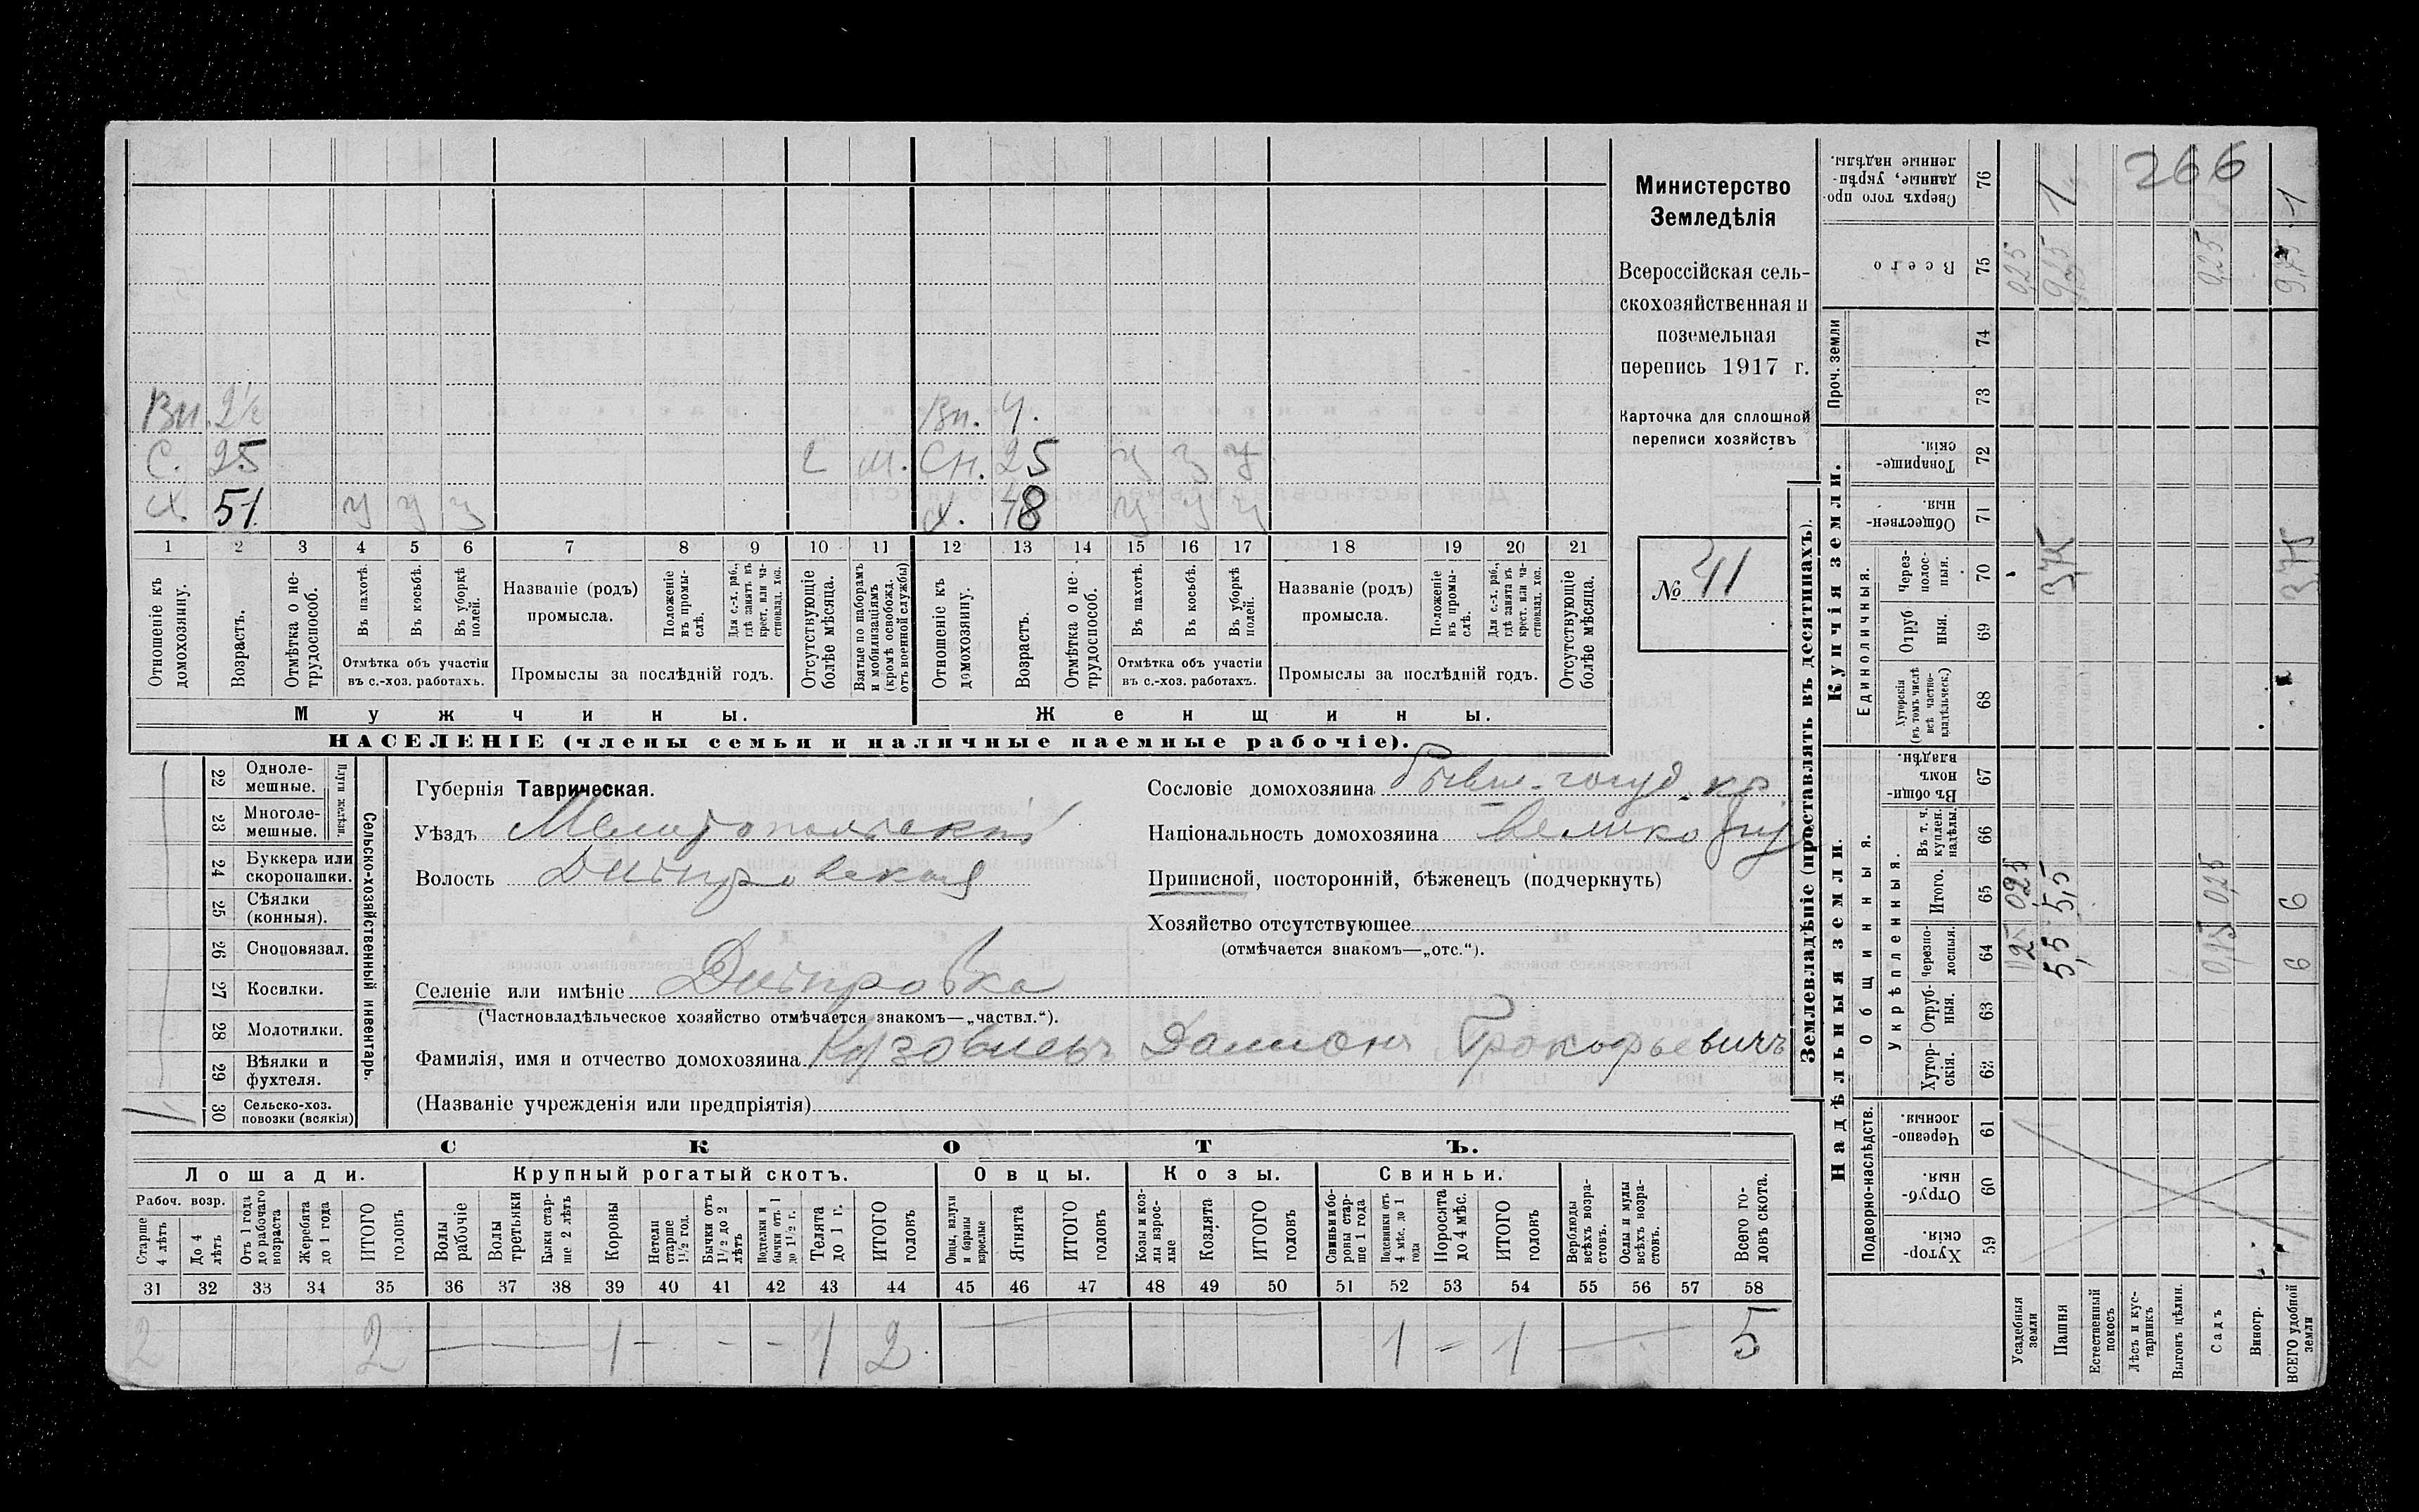 266
Вн. 2½ Вн. 4.
С. 25 м. Сн. 25 у у у
х. 51 у у у х. 48 у у у
1 2 3 4 5 6 7 8 9 10 11 12 13 14 15 16 17 18 19 20 21
Отношеніе къ домохозяину.
Возрастъ.
Отмѣтка о нетрудоспособ.
Въ пахотѣ.
Въ косьбѣ.
Въ уборкѣ полей.
Отмѣтка объ участіи
въ с.-хоз. работахъ.
Названіе (родъ)
промысла.
Положеніе въ промыслѣ.
Для с.-х. раб., гдѣ занятъ въ крест. или частновлад. хоз.
Промыслы за послѣдній годъ.
Отсутствующіе болѣе мѣсяца.
Взятые по наборамъ и мобилизаціямъ (кромѣ освобожд. отъ военной службы)
Отношеніе къ домохозяину.
Возрастъ.
Отмѣтка о нетрудоспособ.
Въ пахотѣ.
Въ косьбѣ.
Въ уборкѣ полей.
Отмѣтка объ участіи
въ с.-хоз. работахъ.
Названіе (родъ)
промысла.
Положеніе въ промыслѣ.
Для с.-х. раб., гдѣ занята въ крест. или частновлад. хоз.
Промыслы за послѣдній годъ.
Отсутствующіе болѣе мѣсяца.
Мужчины. Женщины.
НАСЕЛЕНІЕ (члены семьи и наличные наемные рабочіе).
Министерство
Земледѣлія
Всероссійская сель-
скохозяйственная и
поземельная
перепись 1917 г.
Карточка для сплошной
переписи хозяйствъ
№ 41
Сельско-хозяйственный инвентарь.
Плуги желѣзн.
22 Одноле-
мешные.
23 Многоле-
мешные.
24 Буккера или
скоропашки.
25 Сѣялки
(конныя).
26 Сноповязал.
27 Косилки.
28 Молотилки.
29 Вѣялки и
фухтеля.
30 Сельско-хоз.
повозки (всякія)
1
Губернія Таврическая.
Уѣздъ Мелитопольскій
Волость Днѣпровская
Селеніе или имѣніе Днѣпровка
(Частновладѣльческое хозяйство отмѣчается знакомъ—„частвл.“).
Фамилія, имя и отчество домохозяина Прокофьевичъ
(Названіе учрежденія или предпріятія)
Сословіе домохозяина бывш. госуд. кр.
Національность домохозяина великор
Приписной, посторонній, бѣженецъ (подчеркнуть)
Хозяйство отсутствующее
(отмѣчается знакомъ—„отс.“).
СКОТЪ.
Лошади. Крупный рогатый скотъ. Овцы. Козы. Свиньи.
Рабоч. возр.
Старше 4 лѣтъ
До 4 лѣтъ
Отъ 1 года до рабочаго возраста
Жеребята до 1 года
ИТОГО головъ
Волы рабочіе
Волы третьяки
Быки старше 2 лѣтъ
Коровы
Нетели старше 1½ год.
Бычки отъ 1½ до 2 лѣтъ
Подтелки и бычки отъ 1 до 1½ г.
Телята до 1 г.
ИТОГО головъ
Овцы, валухи и бараны взрослые
Ягнята
ИТОГО головъ
Козы и козлы взрослые
Козлята
ИТОГО головъ
Свиньи и боровы старше 1 года
Подсвинки отъ 4 мѣс. до 1 года
Поросята до 4 мѣс.
ИТОГО головъ
Верблюды всѣхъ возрастовъ.
Ослы и мулы всѣхъ возрастовъ.
Всего головъ скота.
31 32 33 34 35 36 37 38 39 40 41 42 43 44 45 46 47 48 49 50 51 52 53 54 55 56 57 58
2 2 — 1 - - - 1 2 — 1 - 1 — 5
Землевладѣніе (проставлять въ десятинахъ).
Надѣльныя земли.
Купчія земли.
Проч. земли
Подворно-наслѣдств.
Общинныя.
Укрѣпленныя.
Единоличныя.
59 Хуторскія.
60 Отрубныя.
61 Черезполосныя.
62 Хуторскія.
63 Отрубныя.
64 Черезполосныя.
65 Итого.
66 Въ т. ч. куплен. надѣлы.
67 Въ общинномъ владѣн.
68 Хуторскія (въ томъ числѣ всѣ частновладѣльческ.)
69 Отрубныя.
70 Черезполосныя.
71 Общественныя.
72 Товарищескія.
73
74
75 Всего
76 Сверхъ того проданные, укрѣпленные надѣлы.
Усадебныя земли 0,25 0,25
Пашня 5,5 5,5 3,75 1
Естественный покосъ
Лѣсъ и кустарникъ
Выгонъ цѣлин.
Садъ 0,25 0,25
Виногр.
ВСЕГО удобной земли 6 6 3,75 9,75 1